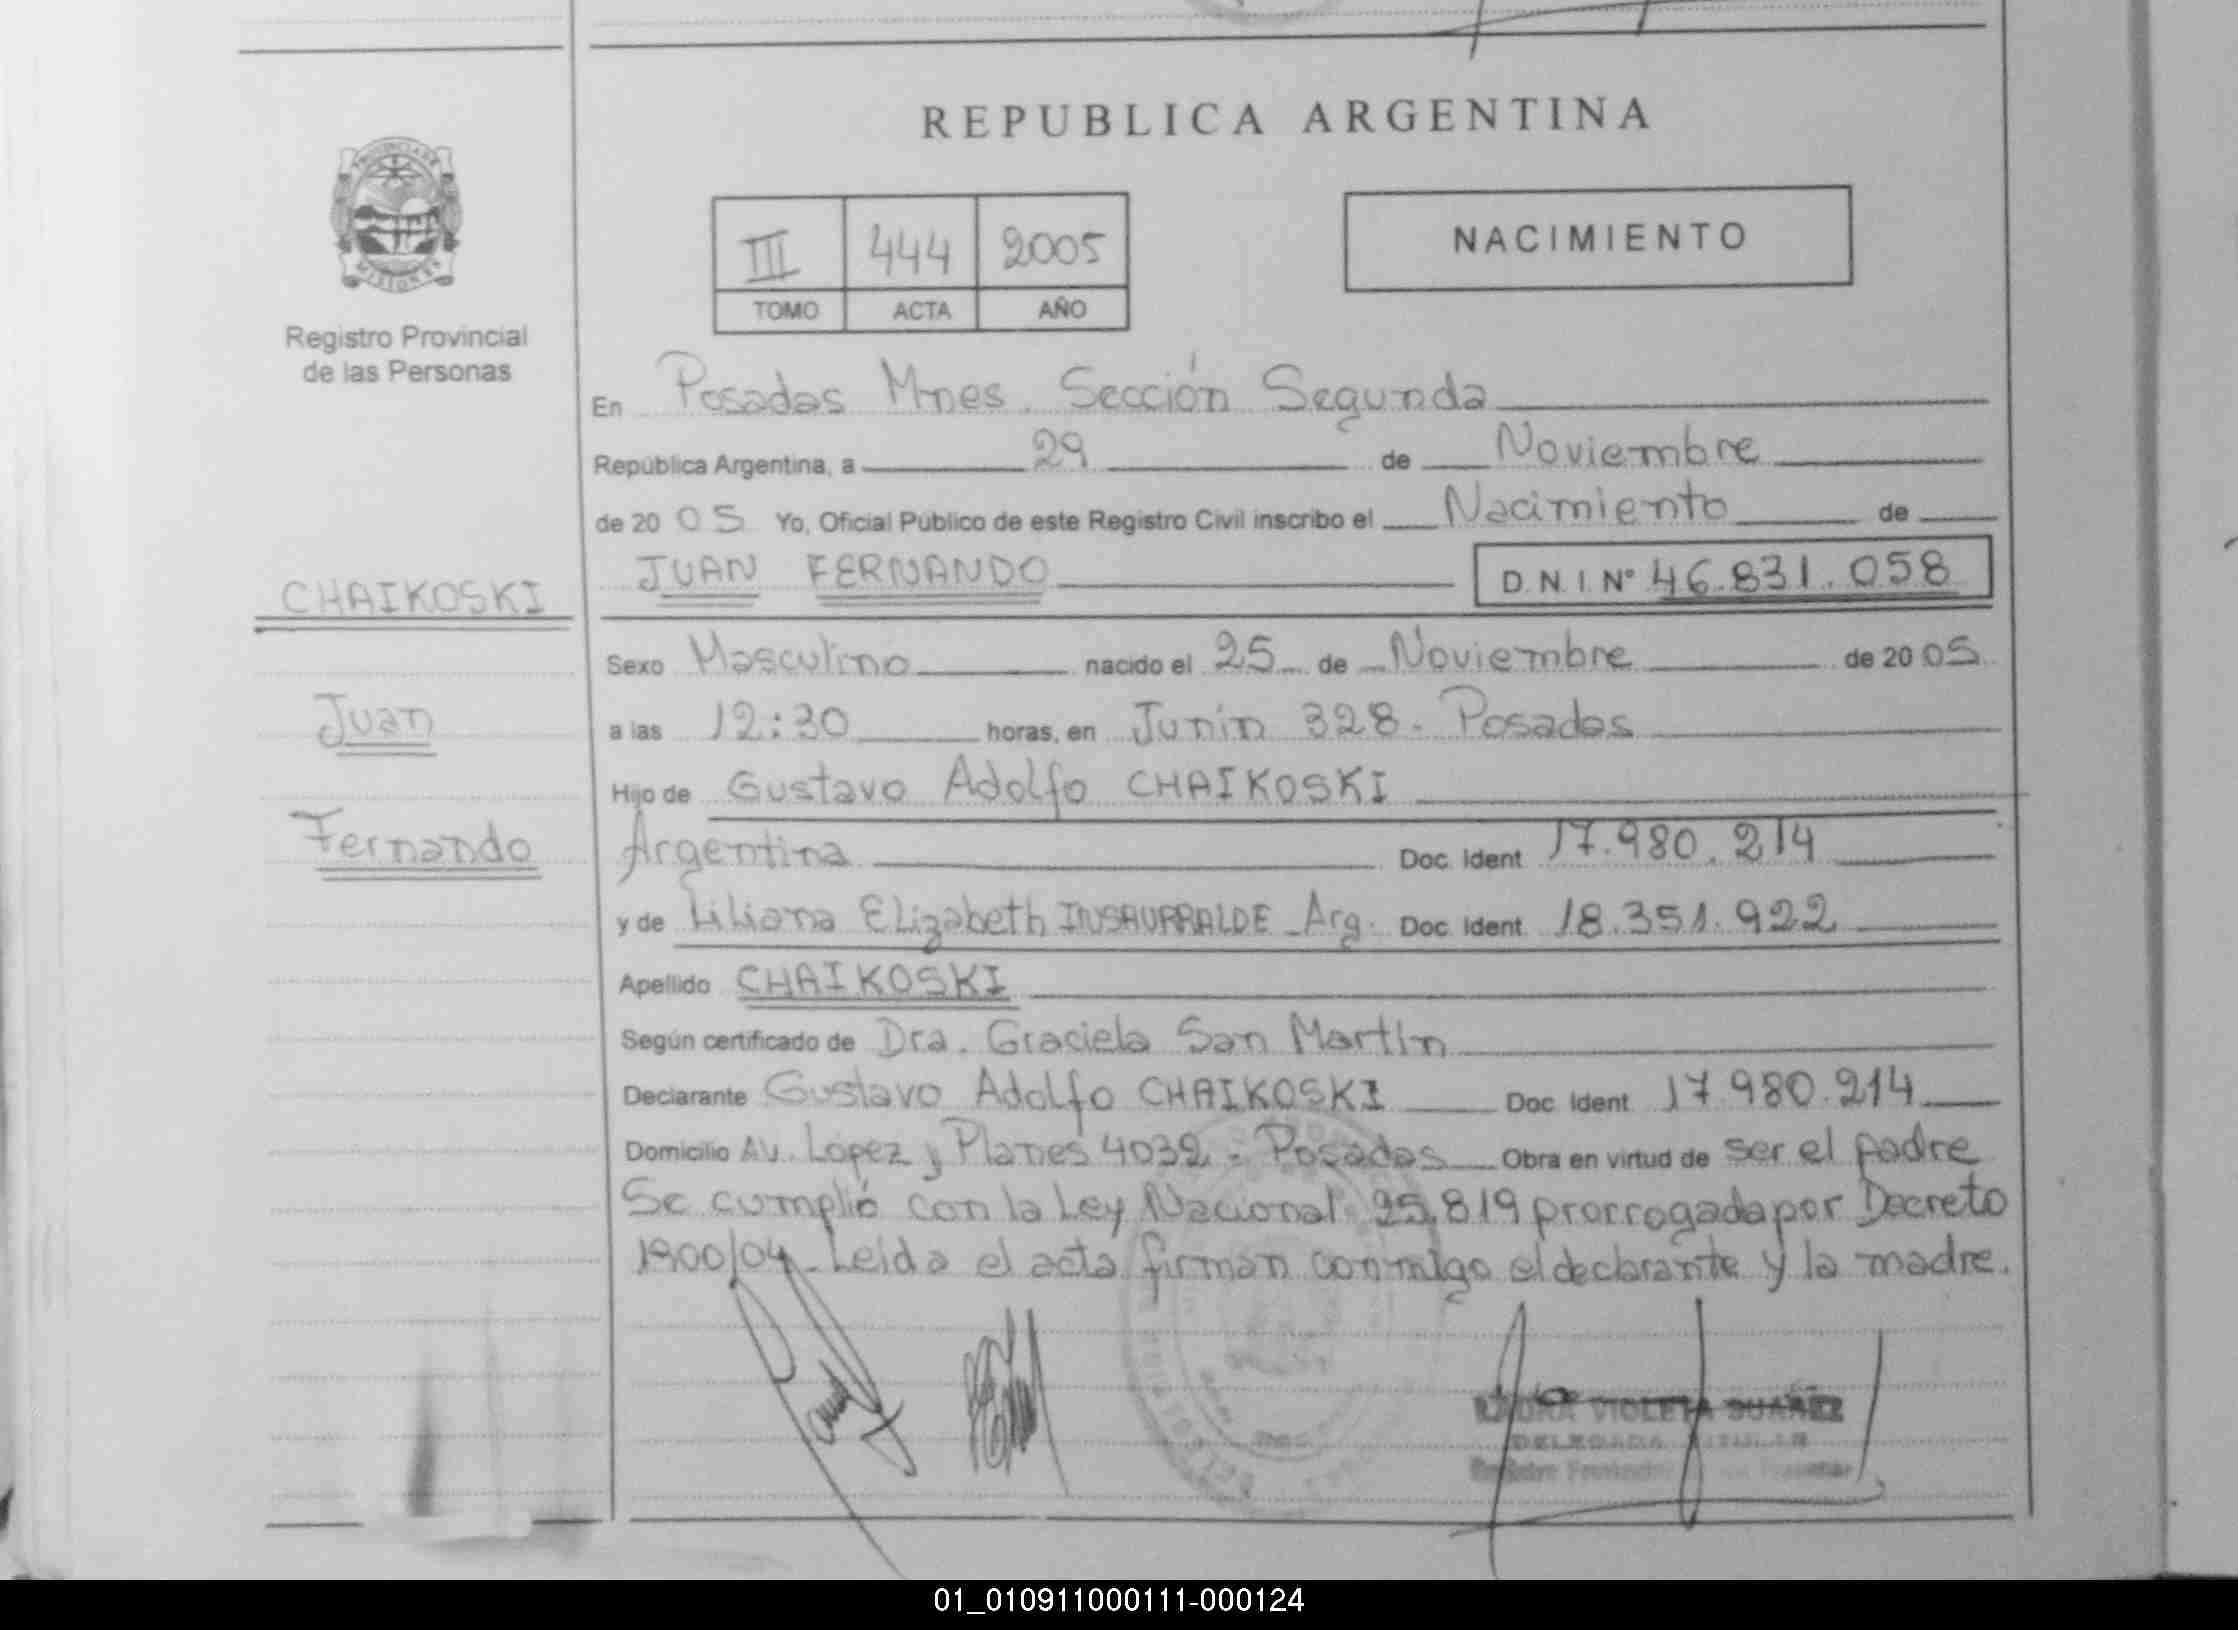 REPUBLICA ARGENTINA
PROVINCIA DE
MISIONES
Registro Provincial
de las Personas
III 444 2005
TOMO ACTA AÑO
NACIMIENTO
En Posadas Mnes. Sección Segunda
República Argentina, a 29 de Noviembre
de 2005 Yo, Oficial Público de este Registro Civil inscribo el Nacimiento de
JUAN FERNANDO D.N.I. Nº 46.831.058
CHAIKOSKI
Juan
Fernando
Sexo Masculino nacido el 25 de Noviembre de 2005
a las 12:30 horas, en Junín 328. Posadas
Hijo de Gustavo Adolfo CHAIKOSKI
Argentina Doc. Ident. 17.980.214
y de Liliana Elizabeth INSAURRALDE Arg. Doc. Ident. 18.351.922
Apellido CHAIKOSKI
Según certificado de Dra. Graciela San Martín
Declarante Gustavo Adolfo CHAIKOSKI Doc. Ident. 17.980.214
Domicilio Av. López y Planes 4032 - Posadas Obra en virtud de ser el padre
Se cumplió con la Ley Nacional 25.819 prorrogada por Decreto
1900/04. Leida el acta firman conmigo el declarante y la madre.
VIOLETA SUAREZ
DELEGADA TITULAR
Registro Provincial
01_010911000111-000124